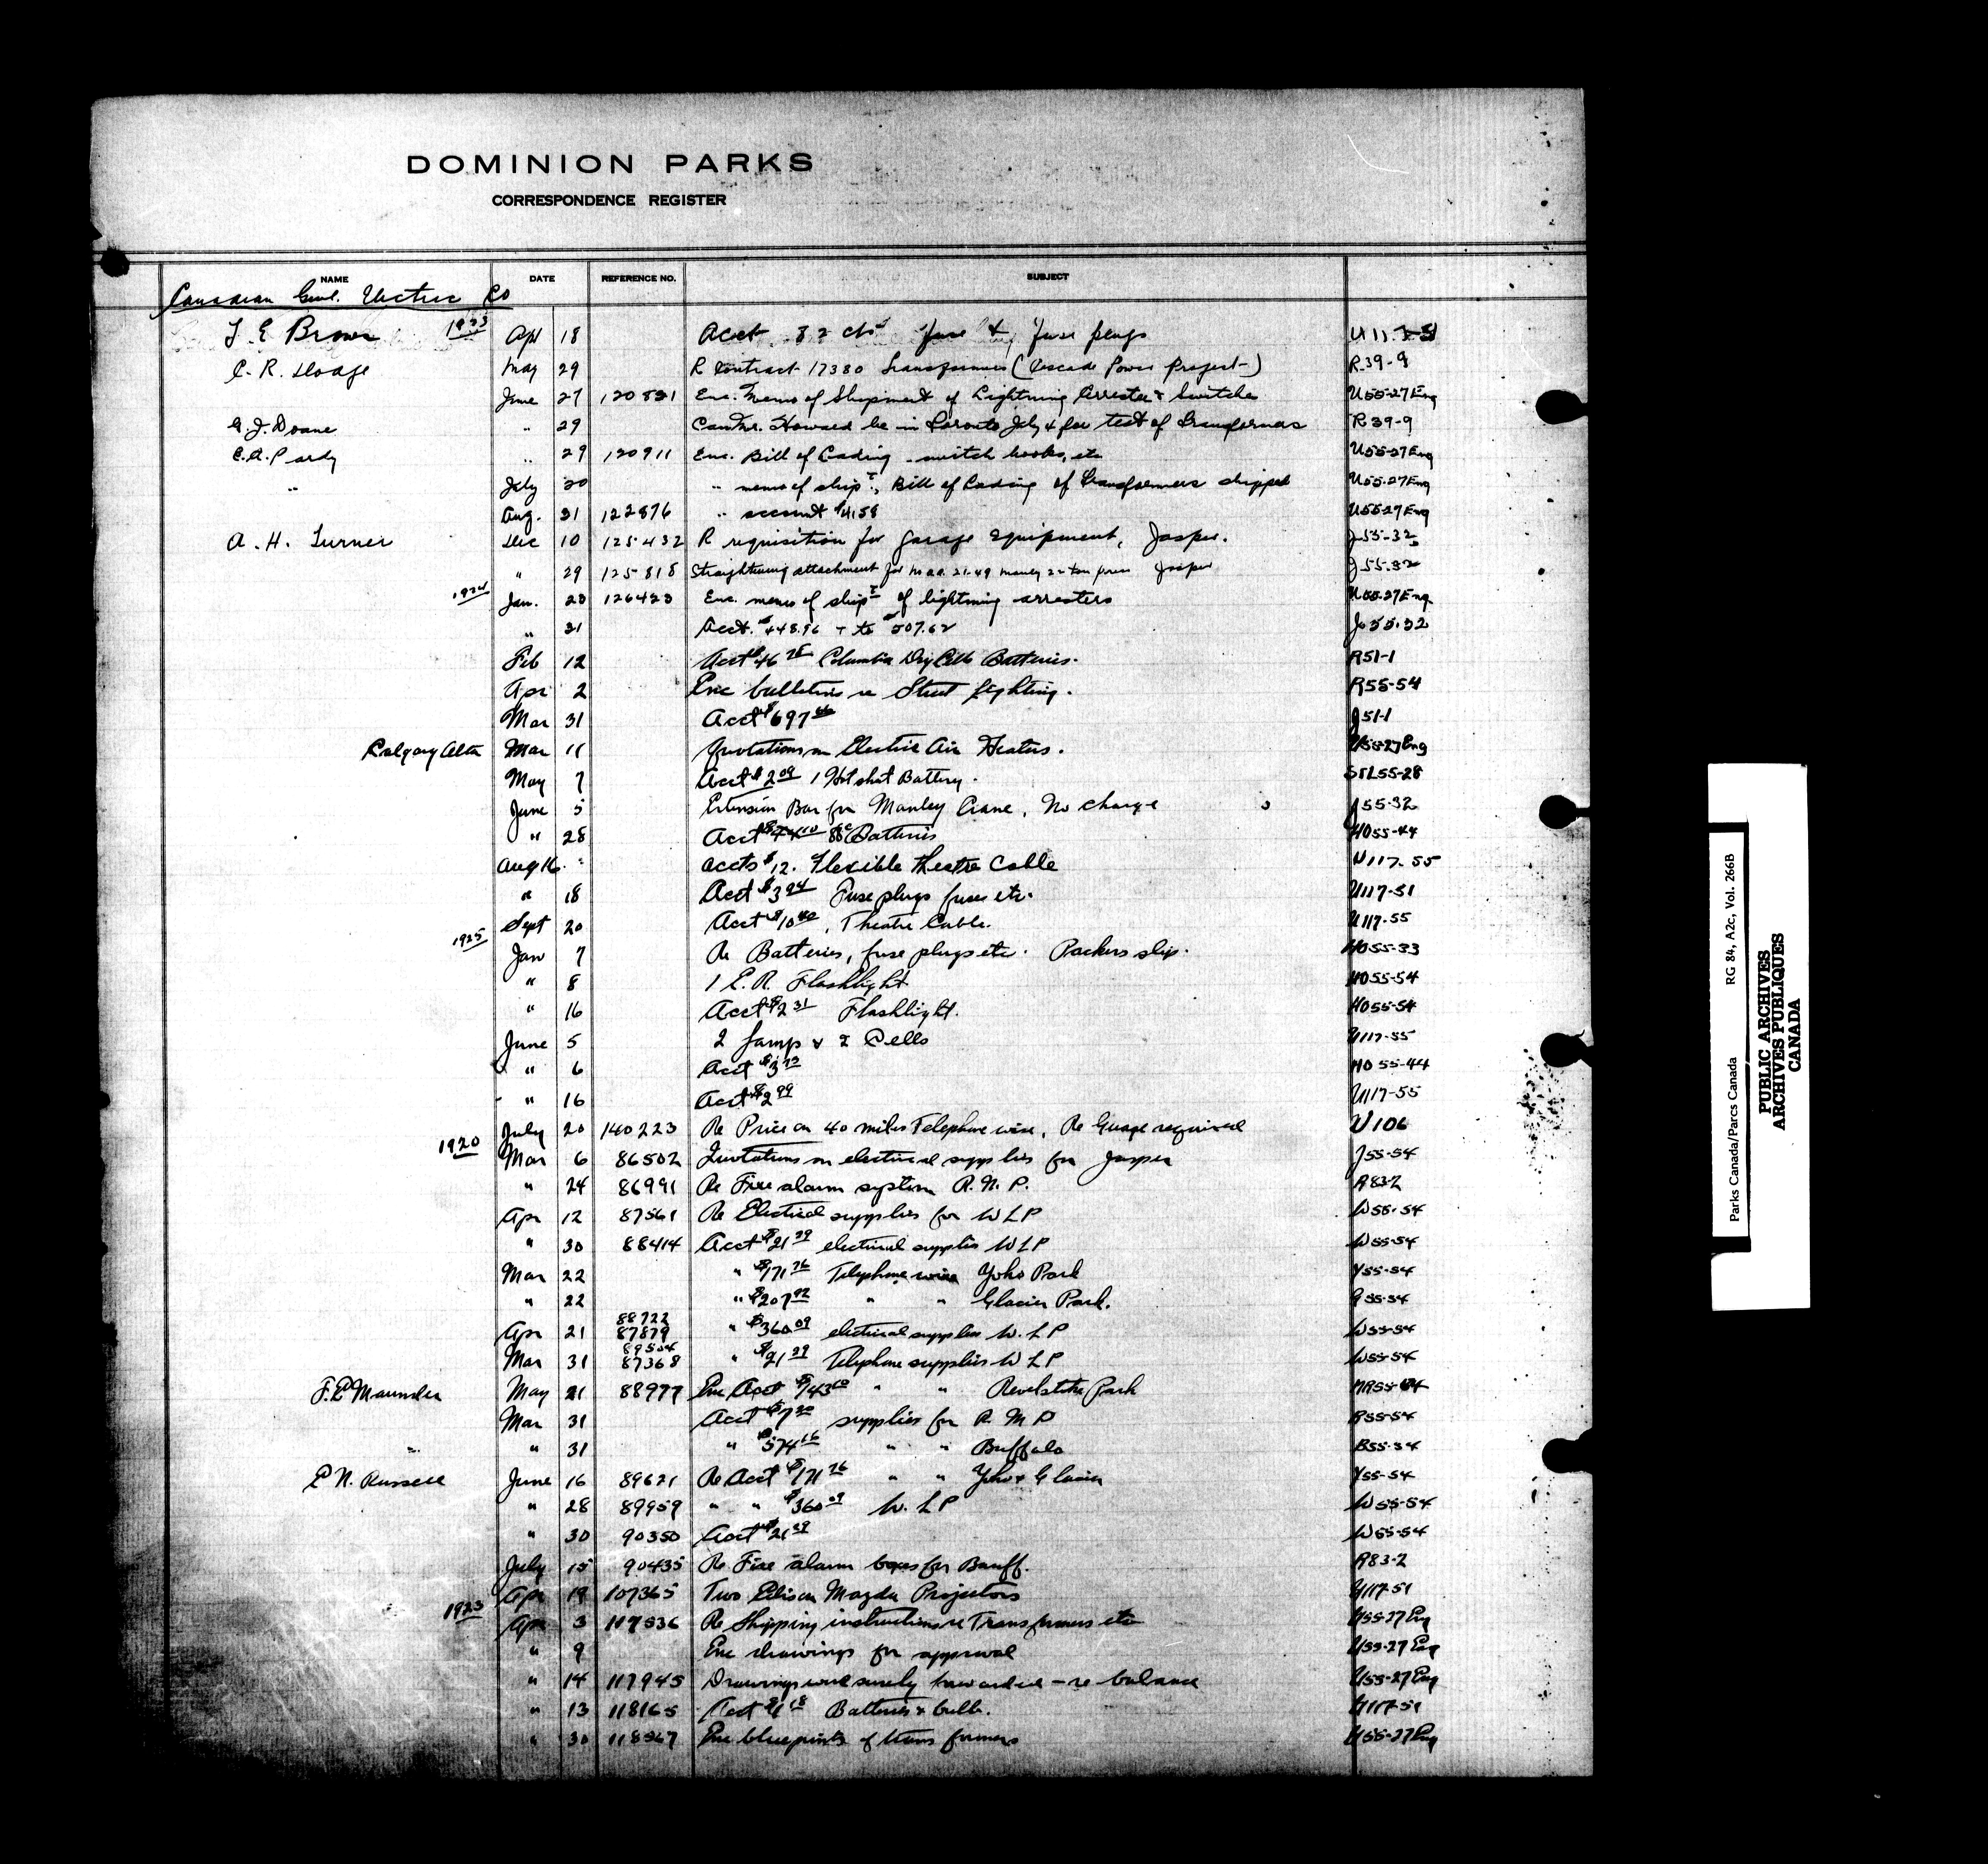 DOMINION PARKS
CORRESPONDENCE REGISTER
NAME DATE REFERENCE NO. SUBJECT
Canadian Genl. Electric Co
1923 Apr 18 Acct 82 cts Fuse & fuse plugs
May 29 R Contract 17380 Transformers (Cascade Power Project) R39-9
June 27 120821 Enc. Memo of Shipment of Lightning Arrester & Switches U55-27Eng
G.J. Doane " 29 Howard be in Toronto July 4 for test of transformers R39-9
C.A. Pardy " 29 120911 Enc. Bill of Lading switch hooks, etc U55-27Eng
" July 20 " memo of shipt, Bill of Lading of transformers shipped U55-27Eng
Aug. 31 122876 " account $4158 U55-27Eng
A. H. Turner Dec 10 125432 R requisition for garage equipment, Jasper. J55-32
" 29 125818 Straightening attachment for 21-49 manley 22 ton press Jasper J55-32
1924 Jan. 23 126423 Enc. memo of shipt of lightning arresters U55-27Eng
" 31 Acct. $448.96 + to $507.62 J55-32
Feb 12 Acct $46 Columbia Dry Cells Batteries. R51-1
Apr 2 Enc bulletins re Street Lighting. R55-54
Mar 31 Acct $697 66 J51-1
Calgary Alta Mar 11 Quotations on Electric Air Heaters. U55-27Eng
May 7 Acct $2 09 1 Hot shot Battery. STL55-28
June 5 Extension Bar for Manley Crane, No charge J55-32
" 28 Acct Batteries HO55-44
Aug 16 accts $12. Flexible theatre Cable U117-55
" 18 Acct $3 94 Fuse plugs fuses etc. U117-51
Sept 20 Acct $10 40, Theatre Cable. U117-55
1925 Jan 7 Re Batteries, fuse plugs etc. Packers slip. HO55-33
" 8 1 E.R. Flashlight HO55-54
" 16 Acct $2 31 Flashlight. HO55-54
June 5 2 Lamps & 2 Cells U117-55
" 6 Acct HO55-44
" 16 Acct $2 99 U117-55
July 20 140223 Re Price on 40 miles Telephone wire, Re Guage required U106
1920 Mar 6 86502 Quotations on electrical supplies for Jasper J55-54
" 24 86991 Re Fire alarm system R.M.P. R83-2
Apr 12 87561 Re Electrical supplies for WLP W55-54
" 30 88414 Acct $21 39 electrical supplies WLP W55-54
Mar 22 " $171 76 Telephone wire Yoho Park Y55-54
" 22 " $207 92 " " Glacier Park. G55-54
88722
Apr 21 87879 " $360 09 electrical supplies W.L.P W55-54
89504
Mar 31 87368 " $21 39 Telephone supplies WLP W55-54
F.E Maunder May 21 88977 Enc Acct $143 60 " " Revelstoke Park MR55-54
Mar 31 Acct $7 30 supplies for R.M.P R55-54
" " 31 " $574 16 " " Buffalo B55-54
E N. Russell June 16 89621 Re Acct $171 76 " " Yoho & Glacier Y55-54
" 28 89959 " " $360 09 W.L.P W55-54
" 30 90350 Acct $21 39 W55-54
July 15 90435 Re Fire alarm boxes for Banff. R83-2
Apr 19 107365 Two Edison Mazda Projectors U117-51
1923 Apr 3 117536 Re Shipping instructions re Transformers etc U55-27Eng
" 9 Enc drawings for approval U55-27Eng
" 14 117945 Drawings will surely forwarded - re balance U55-27Eng
" 13 118165 Acct Batteries & bulb. U117-51
" 30 118567 Enc blueprints of transformers U55-27Eng
Parks Canada/Parcs Canada RG 84, A2c, Vol. 266B
PUBLIC ARCHIVES
ARCHIVES PUBLIQUES
CANADA